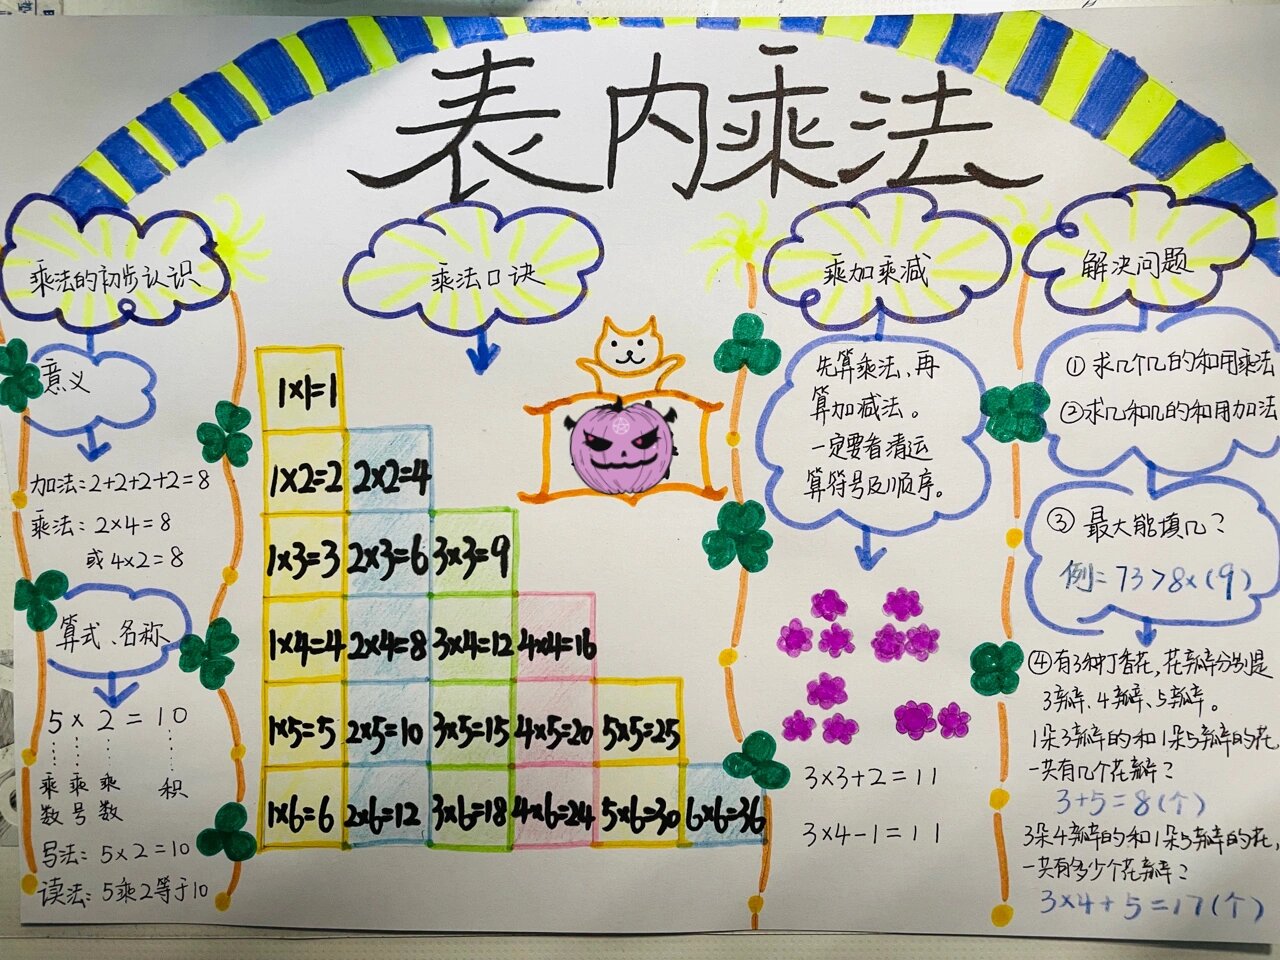 表内乘法
乘法的初步认识
意义
加法:2+2+2+2=8
乘法:2×4=8
或4×2=8
算式、名称
5×2=10
乘数 乘号 乘数 积
写法:5×2=10
读法:5乘2等于10
乘法口诀
1×1=1
1×2=2 2×2=4
1×3=3 2×3=6 3×3=9
1×4=4 2×4=8 3×4=12 4×4=16
1×5=5 2×5=10 3×5=15 4×5=20 5×5=25
1×6=6 2×6=12 3×6=18 4×6=24 5×6=30 6×6=36
乘加乘减
先算乘法、再
算加减法。
一定要看清运
算符号及顺序。
3×3+2=11
3×4-1=11
解决问题
①求几个几的和用乘法
②求几和几的和用加法
③最大能填几?
例=73>8×(9)
④有3种丁香花,花瓣分别是
3瓣、4瓣、5瓣。
1朵3瓣的和1朵5瓣的花,
一共有几个花瓣?
3+5=8(个)
3朵4瓣的和1朵5瓣的花,
一共有多少个花瓣?
3×4+5=17(个)